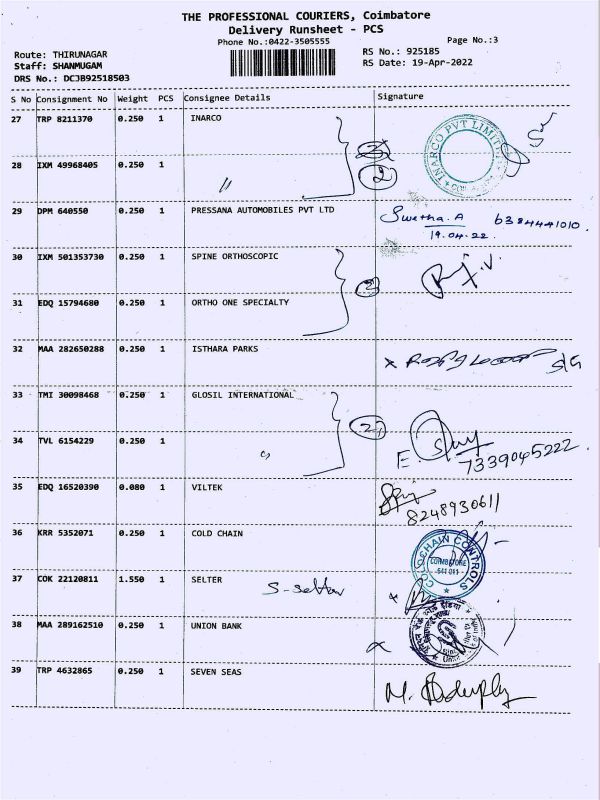 THE PROFESSIONAL COURIERS, Coimbatore
Delivery Runsheet - PCS
Phone No.:0422-3505555
Page No.:3
Route: THIRUNAGAR
Staff: SHANMUGAM
DRS No.: DCJB92518503
RS No.: 925185
RS Date: 19-Apr-2022
S No Consignment No Weight PCS Consignee Details Signature
27 TRP 8211370 0.250 1 INARCO
INARCO PVT LIMITED
28 IXM 49968405 0.250 1 〃 2
29 DPM 640550 0.250 1 PRESSANA AUTOMOBILES PVT LTD Swetha.A 6384441010
19.04.22
30 IXM 501353730 0.250 1 SPINE ORTHOSCOPIC
2
31 EDQ 15794680 0.250 1 ORTHO ONE SPECIALTY
32 MAA 282650288 0.250 1 ISTHARA PARKS
33 TMI 30098468 0.250 1 GLOSIL INTERNATIONAL
2
34 TVL 6154229 0.250 1 〃 E.
7339045222
35 EDQ 16520390 0.080 1 VILTEK
8248930611
36 KRR 5352071 0.250 1 COLD CHAIN
COLD CHAIN CONTROLS
COIMBATORE
641 011
37 COK 22120811 1.550 1 SELTER S-seltar
38 MAA 289162510 0.250 1 UNION BANK
39 TRP 4632865 0.250 1 SEVEN SEAS